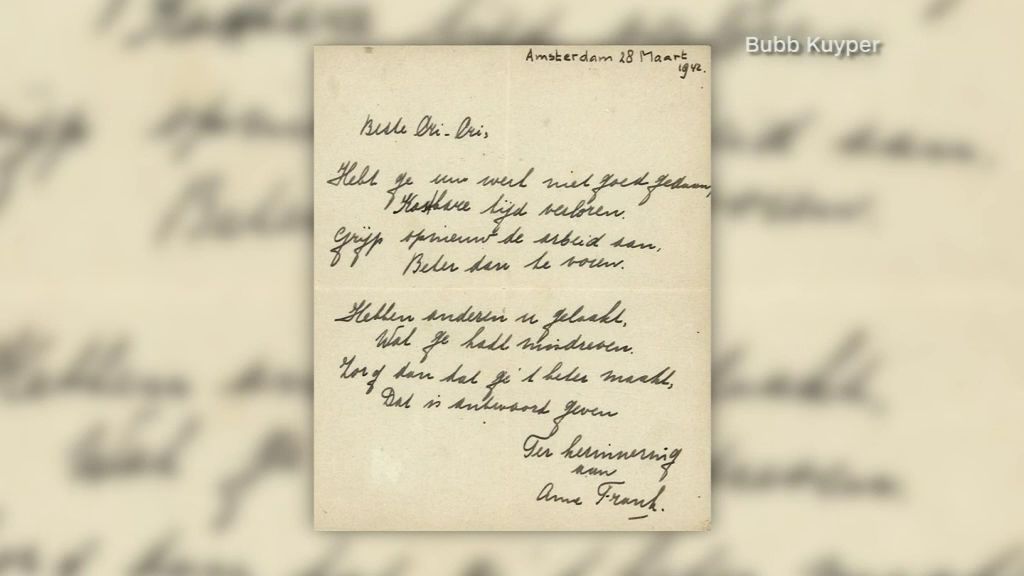 Bubb Kuyper
Amsterdam 28 Maart
1942.
Beste Cri-Cri,
Hebt ge uw werk niet goed gedaan,
Kostbare tijd verloren.
Grijp opnieuw de arbeid aan,
Beter dan te voren.
Hebben anderen u gelaakt,
Wat ge hadt misdreven.
Zorg dan dat ge 't beter maakt,
Dat is antwoord geven
Ter herinnering
aan
Anne Frank.